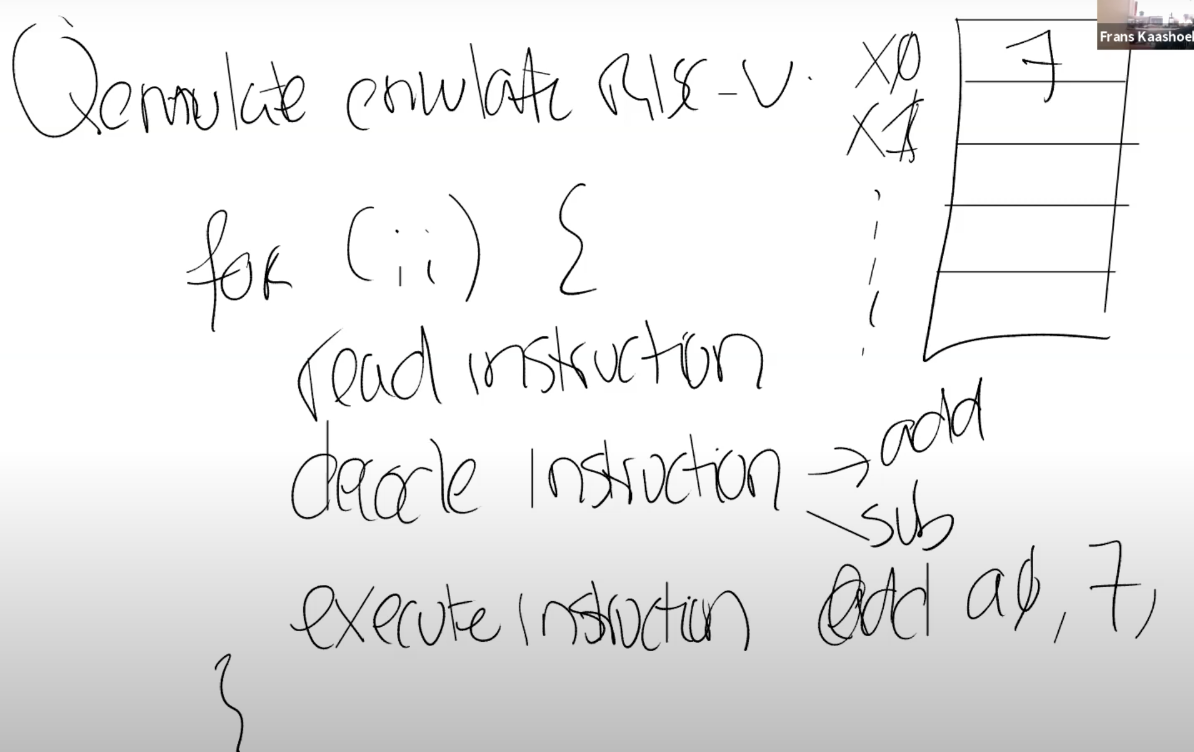 Qemulate emulate RISC-V.
X0 7
X1
for (;;) {
read instruction
decode instruction → add
sub
execute instruction add a0, 7,
}
Frans Kaashoe